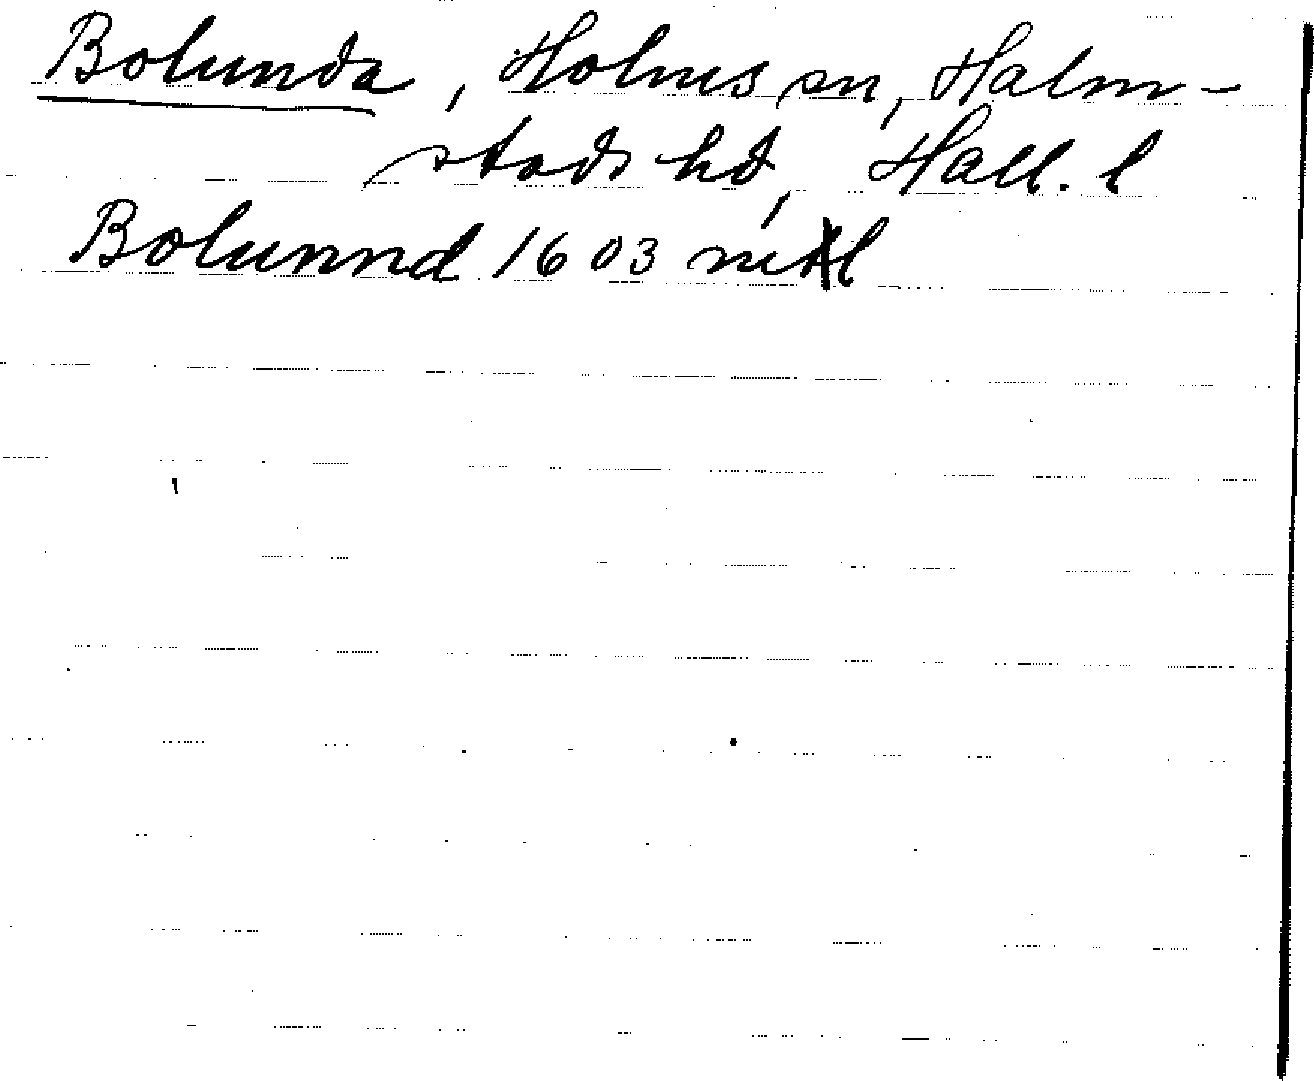 Bolunda, Holms sn, Halm-
stads hd, Hall. l
Bolunnd 1603